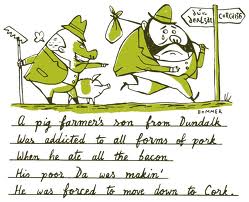 dún
dealgan
CORCAIGH
BOMMER
A pig farmer's son from Dundalk
Was addicted to all forms of pork
When he ate all the bacon
His poor Da was makin'
He was forced to move down to Cork.